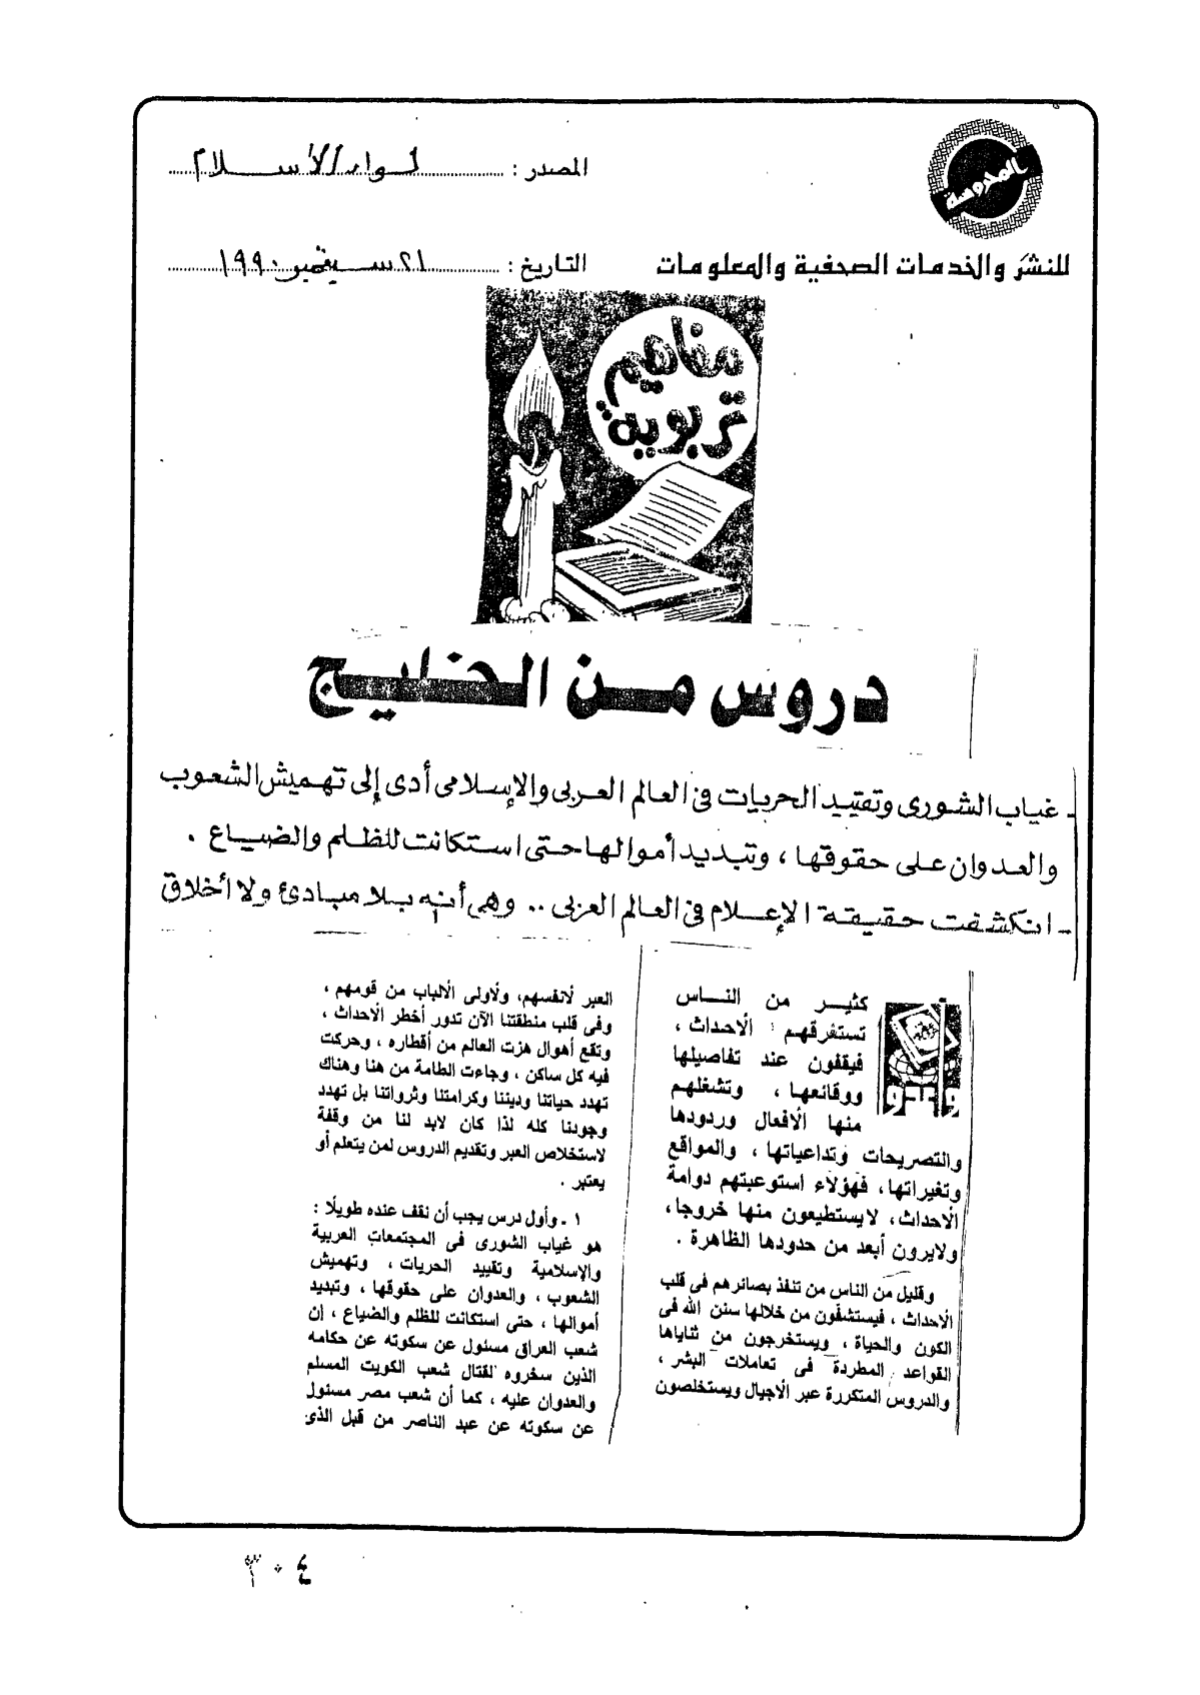 المصدر : لواء الأسلام
المحروسة
للنشر والخدمات الصحفية والمعلومات
التاريخ : ٢١ سبتمبر ١٩٩٠
مفاهيم
تربوية
دروس من الخليج
- غياب الشورى وتقييد الحريات فى العالم العربى والإسلامى أدى إلى تهميش الشعوب
والعدوان على حقوقها ، وتبديد أموالها حتى استكانت للظلم والضياع .
- انكشفت حقيقة الإعلام فى العالم العربى .. وهى أنه بلا مبادئ ولا أخلاق
كثير من الناس
تستغرقهم الأحداث ،
فيقفون عند تفاصيلها
ووقائعها ، وتشغلهم
منها الأفعال وردودها
والتصريحات وتداعياتها ، والمواقع
وتغيراتها ، فهؤلاء استوعبتهم دوامة
الأحداث ، لايستطيعون منها خروجا ،
ولايرون أبعد من حدودها الظاهرة .
وقليل من الناس من تنفذ بصائرهم فى قلب
الأحداث ، فيستشفون من خلالها سنن الله فى
الكون والحياة ، ويستخرجون من ثناياها
القواعد المطردة فى تعاملات البشر ،
والدروس المتكررة عبر الأجيال ويستخلصون
العبر لأنفسهم، ولأولى الألباب من قومهم ،
وفى قلب منطقتنا الآن تدور أخطر الأحداث ،
وتقع أهوال هزت العالم من أقطاره ، وحركت
فيه كل ساكن ، وجاءت الطامة من هنا وهناك
تهدد حياتنا وديننا وكرامتنا وثرواتنا بل تهدد
وجودنا كله لذا كان لابد لنا من وقفة
لاستخلاص العبر وتقديم الدروس لمن يتعلم أو
يعتبر .
١ - وأول درس يجب أن نقف عنده طويلا :
هو غياب الشورى فى المجتمعات العربية
والإسلامية وتقييد الحريات ، وتهميش
الشعوب ، والعدوان على حقوقها ، وتبديد
أموالها ، حتى استكانت للظلم والضياع ، إن
شعب العراق مسئول عن سكوته عن حكامه
الذين سخروه لقتال شعب الكويت المسلم
والعدوان عليه ، كما أن شعب مصر مسئول
عن سكوته عن عبد الناصر من قبل الذى
٣٠٤